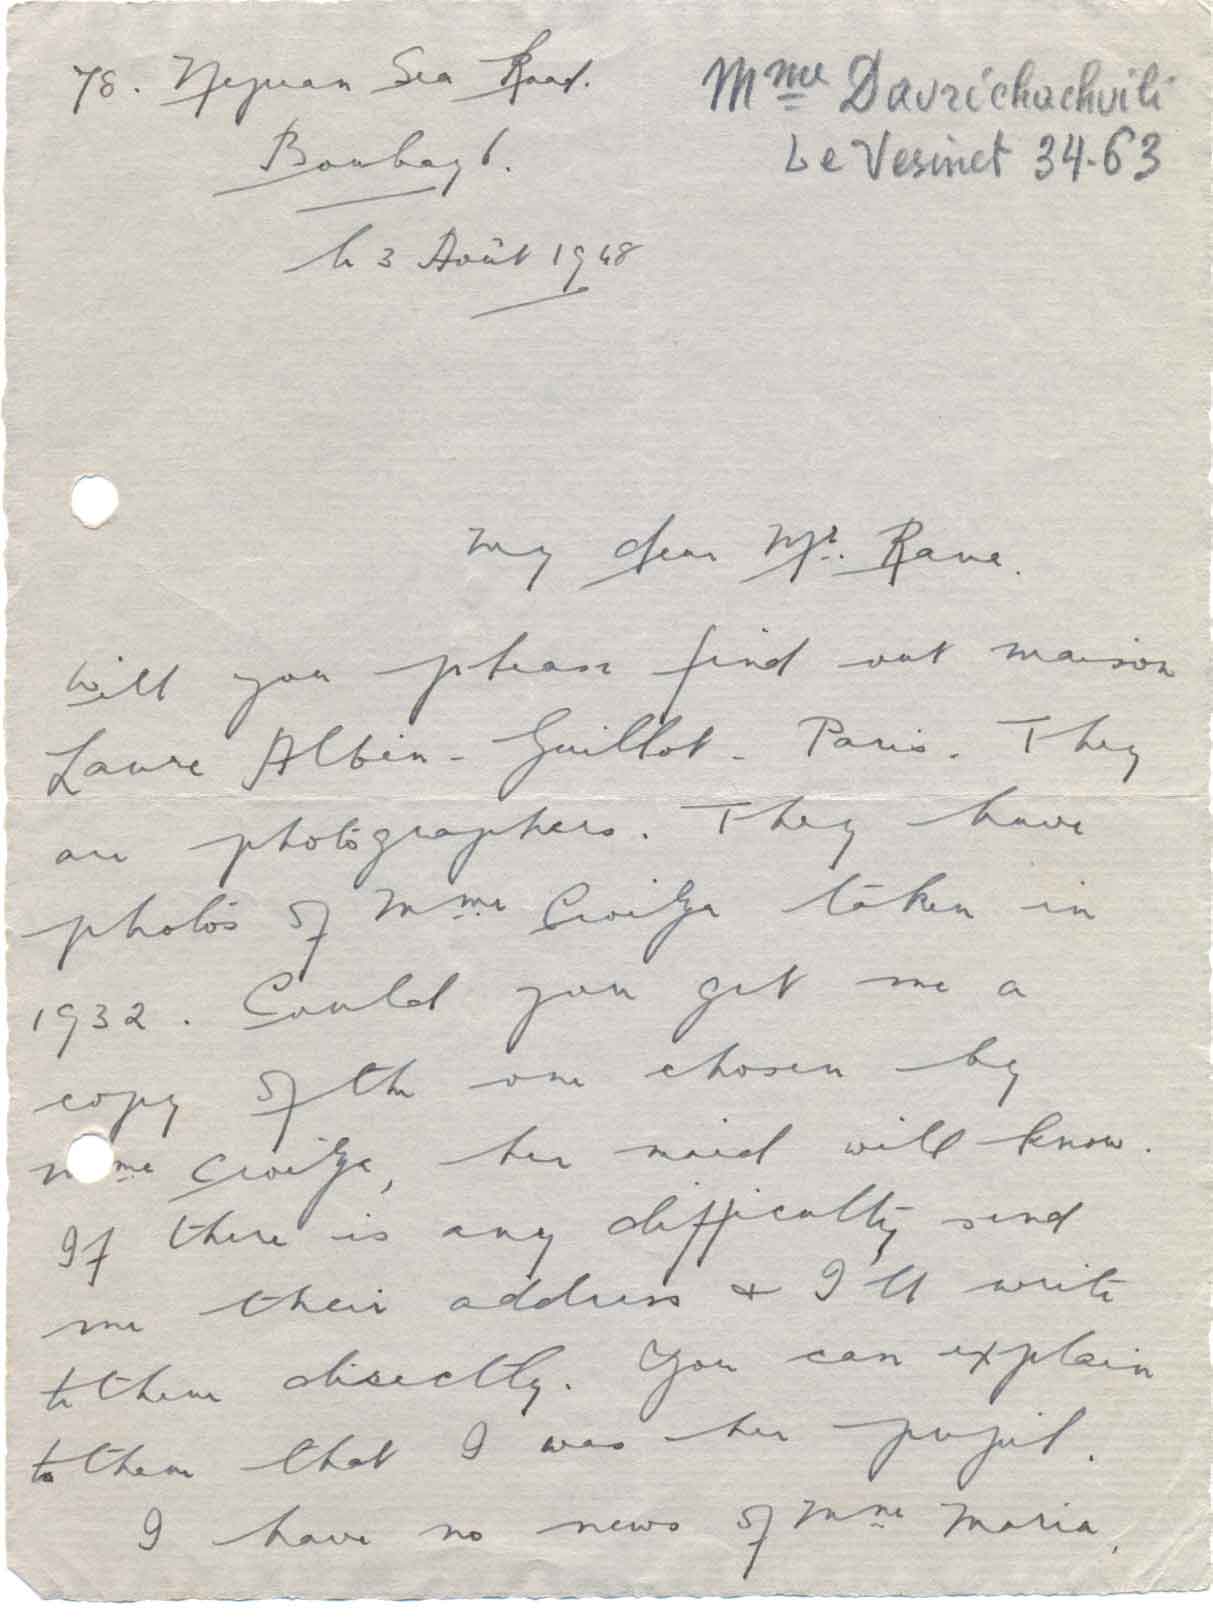 78. Nepean Sea Road.
Bombay 6.
le 3 Août 1948
Mme Davrichachvili
Le Vesinet 34-63
My dear Mr. Rane.
Will you please find out maison
Laure Albin-Guillot - Paris. They
are photographers. They have
photos of Mme Croiza taken in
1932. Could you get me a
copy of the one chosen by
Mme Croiza, her maid will know.
If there is any difficulty, send
me their address & I'll write
to them directly. You can explain
to them that I was her pupil.
I have no news of Mme Maria,